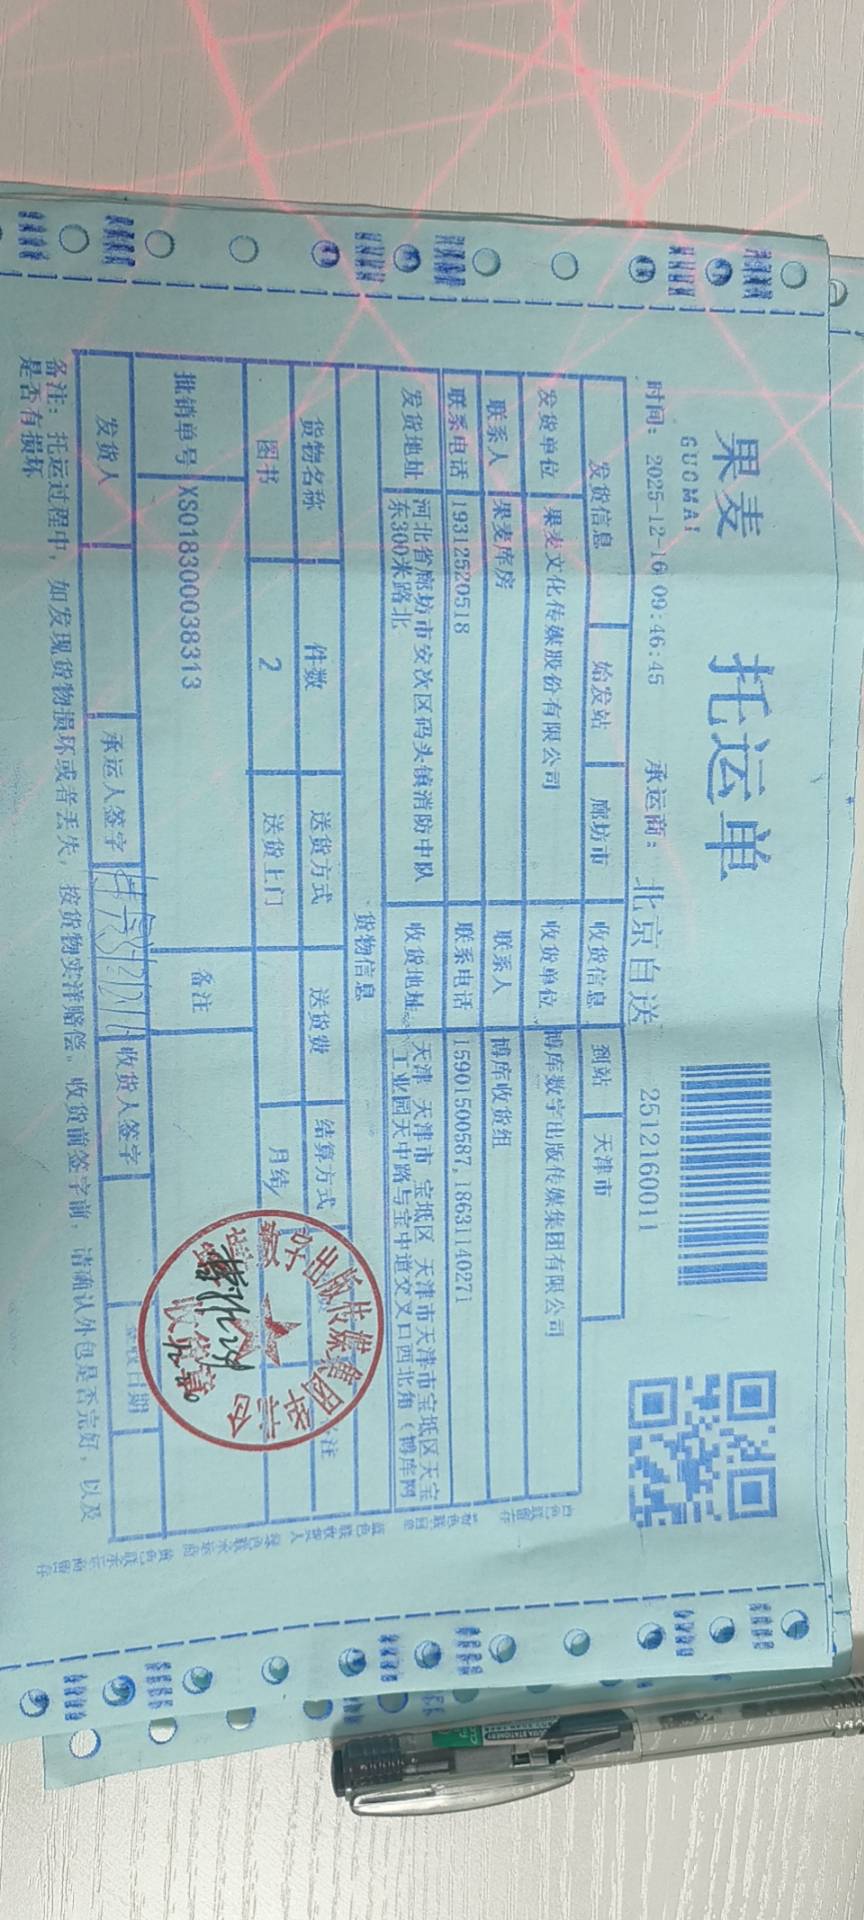 果麦
GUOMAI
托运单
时间: 2025-12-16 09:46:45 承运商: 北京自送 2512160011
发货信息 始发站 廊坊市 收货信息 到站 天津市
发货单位 果麦文化传媒股份有限公司 收货单位 博库数字出版传媒集团有限公司
联系人 果麦库房 联系人 博库收货组
联系电话 19312520518 联系电话 15901500587,18631140271
发货地址 河北省廊坊市安次区码头镇消防中队 收货地址 天津 天津市 宝坻区 天津市天津市宝坻区天宝
东300米路北 工业园天中路与宝中道交叉口西北角（博库网
货物信息
货物名称 件数 送货方式 送货费 结算方式 备注
图书 2 送货上门 月结
批销单号 XS018300038313 备注
发货人 承运人签字 收货人签字 签收日期
备注: 托运过程中，如发现货物损坏或者丢失，按货物实洋赔偿。收货前签字前，请确认外包是否完好，以及
是否有损坏
出版传媒集团
收货章